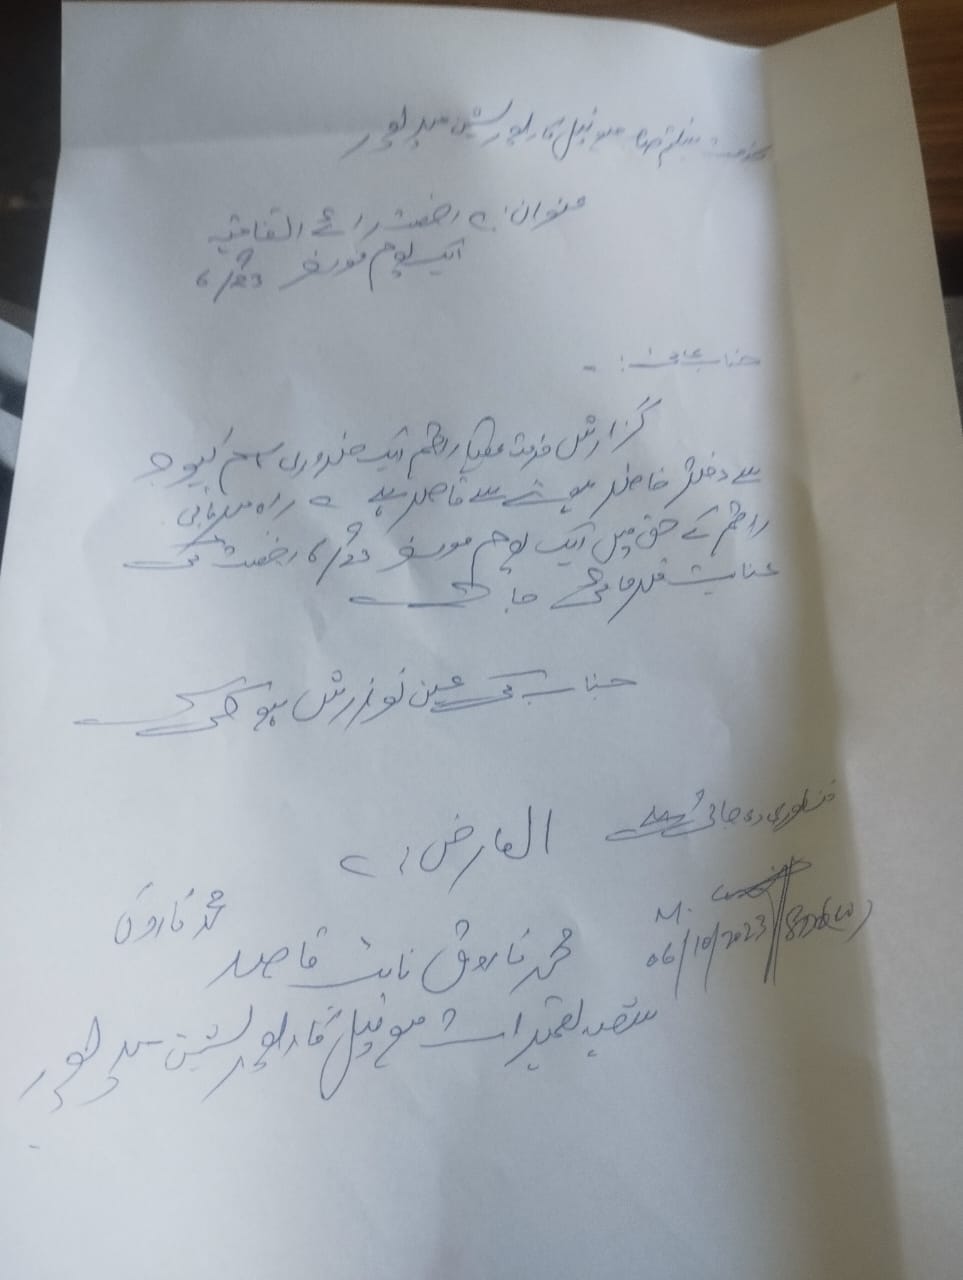 بخدمت جناب منتظم صاحب میونسپل کارپوریشن میرپور
عنوان:۔ رخصت رائے اتفاقیہ
ایک یوم مورخہ 6/9/23
جناب عالی!۔
گزارش خدمت ہیکہ راقم ایک ضروری کام کیوجہ
سے دفتر حاضر ہونے سے قاصر ہے ۔ براہ مہربانی
راقم کے حق میں ایک یوم مورخہ 6/9/23 رخصت کی
عنایت فرمائی جائے
جناب کی عین نوازش ہو گی
منظوری دی جاتی ہے
العارض:۔
محمد فاروق
M.
06/10/2023
محمد فاروق نائب قاصد
شعبہ تعمیرات میونسپل کارپوریشن میرپور